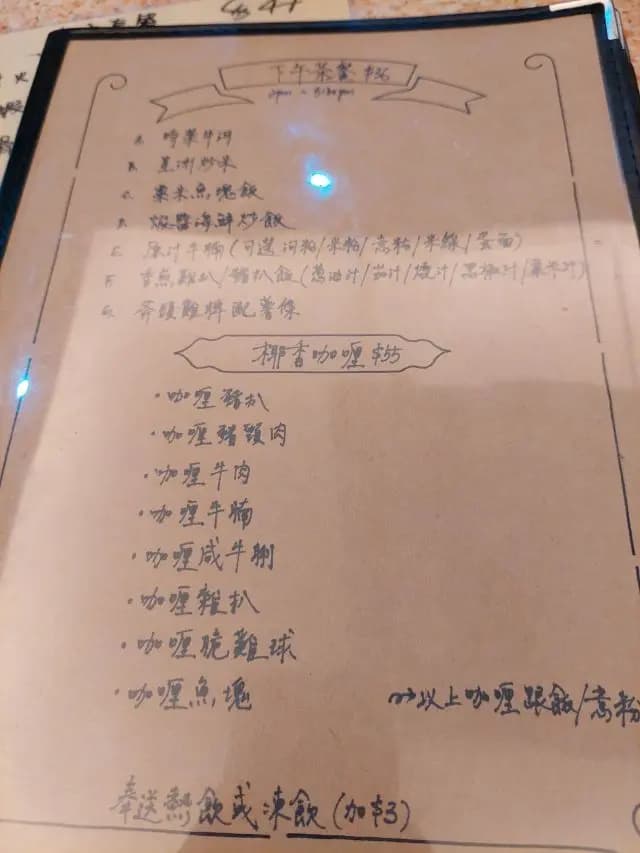 下午茶餐 $36
A. 時菜牛河
B. 星洲炒米
C. 粟米魚塊飯
D. 海鮮炒飯
E. 原汁牛腩(可選河粉/米粉/意粉/米線/蛋面)
F. 香煎雞扒/豬扒飯(蔥油汁/茄汁/燒汁/黑椒汁/粟米汁)
G. 斧頭雞髀配薯條
椰香咖喱 $55
·咖喱豬扒
·咖喱豬頸肉
·咖喱牛肉
·咖喱牛腩
·咖喱咸牛脷
·咖喱雞扒
·咖喱脆雞球
·咖喱魚塊
以上咖喱跟飯/意粉
奉送熱飲或凍飲(加$3)